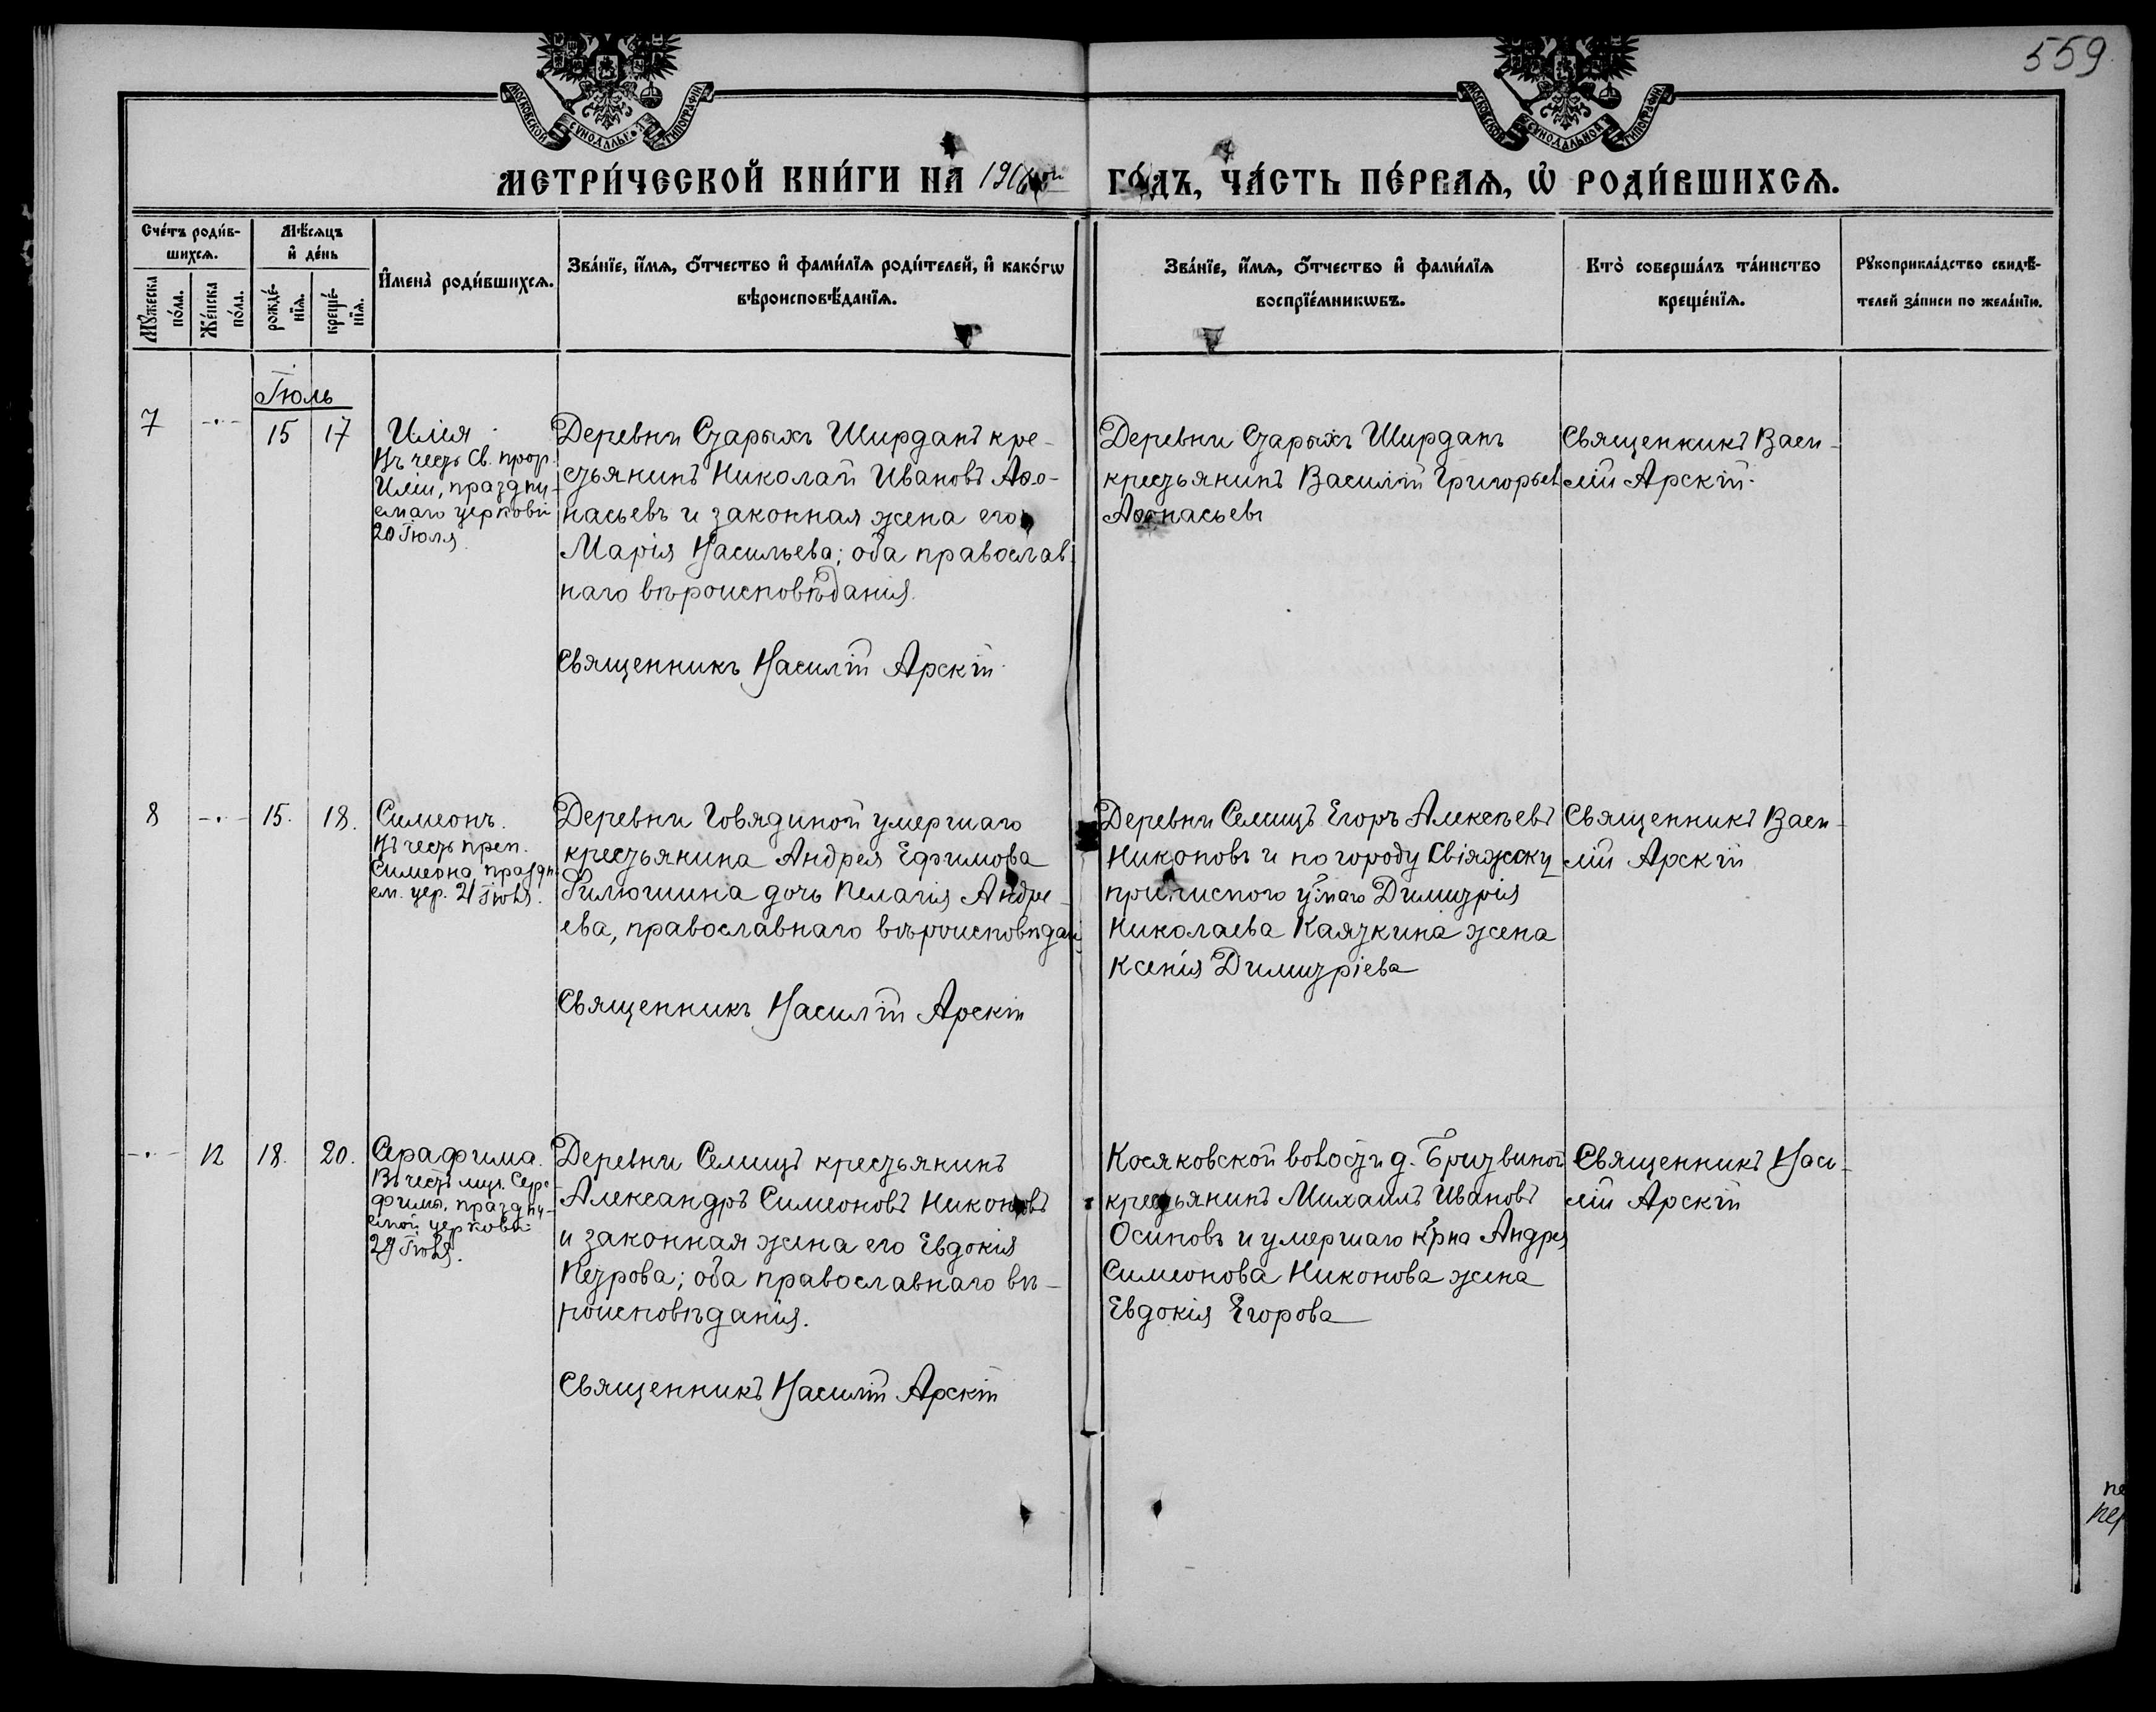 559.
МОСКОВСКОЙ СУНОДАЛЬНОЙ ТИПОГРАФІИ
МОСКОВСКОЙ СУНОДАЛЬНОЙ ТИПОГРАФІИ
МЕТРИ́ЧЕСКОЙ КНИ́ГИ НА̀
ГО́ДЪ, ЧА́СТЬ ПЕ́РВАѦ, Ѡ҆ РОДИ́ВШИХСѦ.
Сче́тъ роди́в-
шихсѧ.
Мѣ́сѧцъ
и҆ де́нь
Мꙋ́жеска
по́ла.
Же́нска
по́ла.
рожде́-
нїѧ.
креще́-
нїѧ.
И҆мена̀ роди́вшихсѧ.
Зва́нїе, и҆́мѧ, ѻ҆́тчество и҆ фами́лїѧ роди́телей, и҆ како́гѡ
вѣроисповѣ́данїѧ.
Зва́нїе, и҆́мѧ, ѻ҆́тчество и҆ фами́лїѧ
воспрїе́мникѡвъ.
Кто̀ соверша́лъ та́инство
креще́нїѧ.
Рꙋкоприкла́дство свидѣ́-
телей за́писи по жела́нїю.
Іюль
7 -·- 15 17
Илія.
Въ честь Св. прор.
Иліи, праздну-
емаго церковію
20 Іюля.
Деревни Старыхъ Ширданъ кре-
стьянинъ Николай Ивановъ Аѳо-
насьевъ и законная жена его
Марія Васильева; оба православ-
наго вѣроисповѣданія.
Священникъ Василій Арскій.
Деревни Старыхъ Ширданъ
крестьянинъ Василій Григорьевъ
Аѳонасьевъ
Священникъ Васи-
лій Арскій.
8 -·- 15. 18.
Симеонъ.
Въ честь преп.
Симеона, праздн.
ем. цер. 21 Іюля.
Деревни Говядиной умершаго
крестьянина Андрея Ефимова
Филюшина дочь Пелагія Андре-
ева, православнаго вѣроисповѣдан.
Священникъ Василій Арскій
Деревни Селищъ Егоръ Алексѣевъ
Никоновъ и по городу Свіяжску
приписного ум͠аго Димитрія
Николаева Каяткина жена
Ксенія Димитріева
Священникъ Васи-
лій Арскій
-·- 12 18. 20.
Серафима.
Въ честь муч. Сера-
фимы, праздну-
емой церковію
29 Іюля.
Деревни Селищъ крестьянинъ
Александръ Симеоновъ Никоновъ
и законная жена его Евдокія
Петрова; оба православнаго вѣ-
роисповѣданія.
Священникъ Василій Арскій
Косяковской волости д. Бритвиной
крестьянинъ Михаилъ Ивановъ
Осиповъ и умершаго кр͠на Андрея
Симеонова Никонова жена
Евдокія Егорова
Священникъ Васи-
лій Арскій